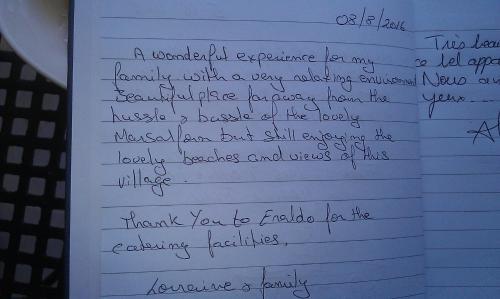 03/8/2016
A wonderful experience for my
family with a very relaxing environment
beautiful place faraway from the
hussle & bussle of the lovely
Marsalforn but still enjoying the
lovely beaches and views of this
village.
Thank You to Enaldo for the
catering facilities.
Lorraine & family
Très beau
ce bel appa
Nous av
yeux